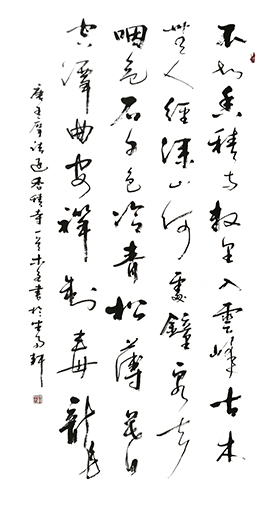 不知香積寺數里入雲峰古木
無人徑深山何處鐘泉聲
咽危石日色冷青松薄暮
空潭曲安禪制毒龍
唐王摩詰過香積寺一首書於軒